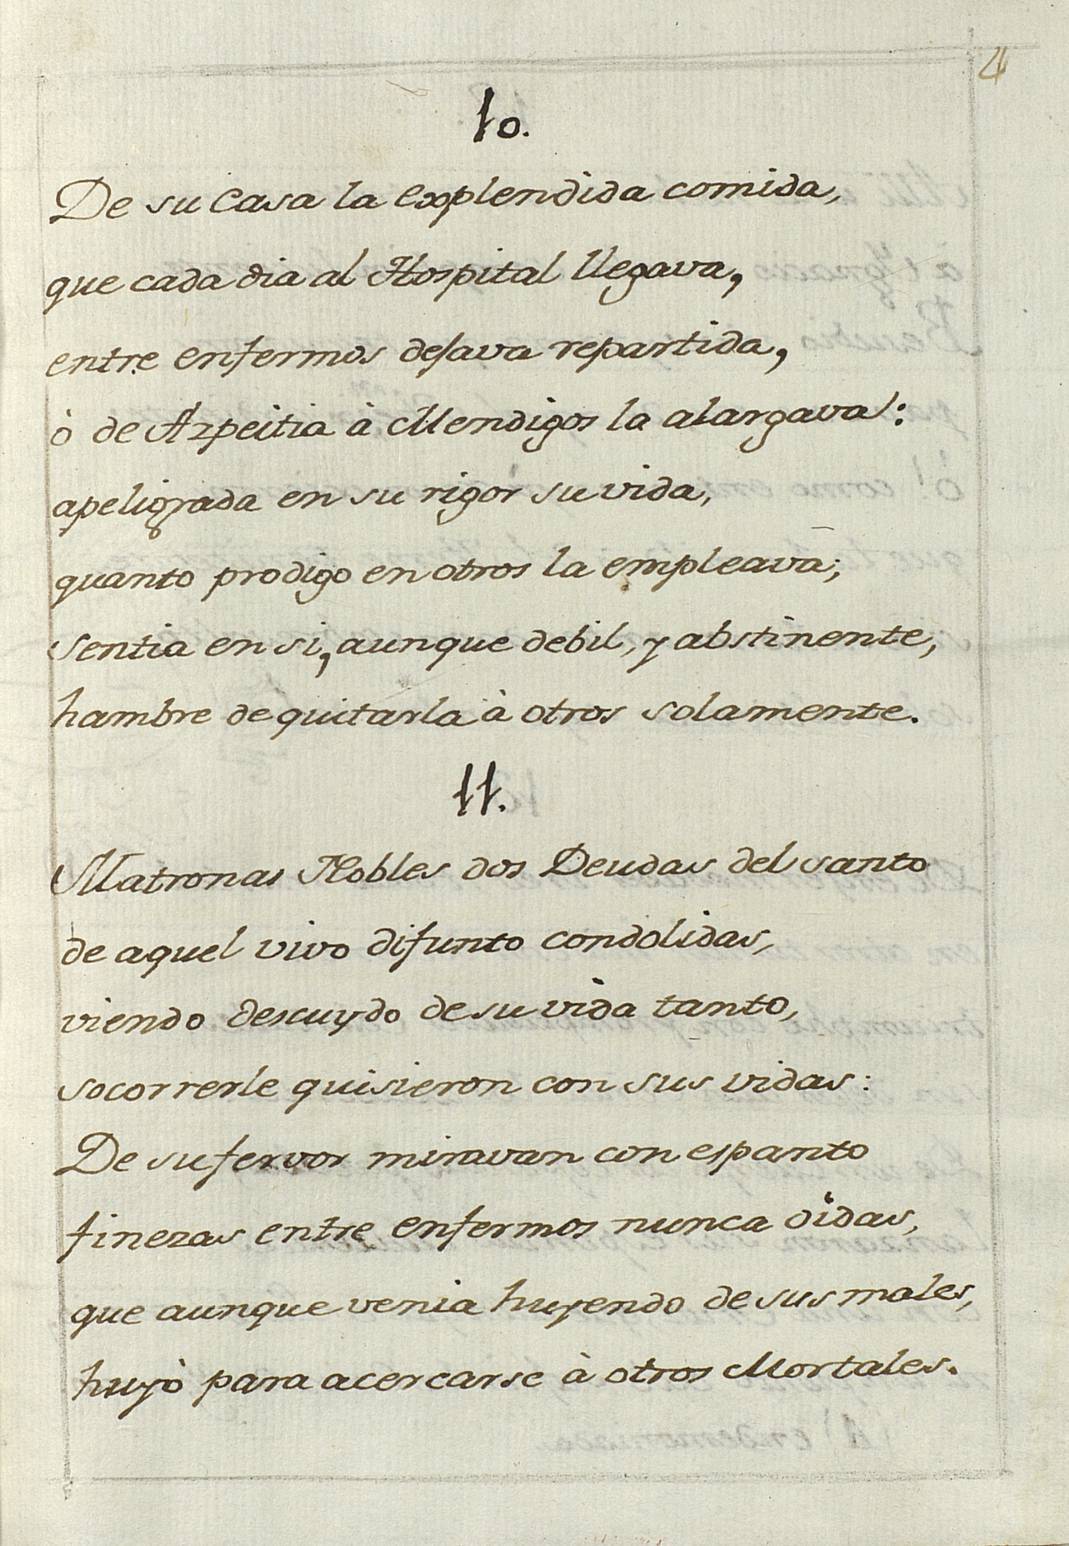 4
10.
De su Casa la explendida comida,
que cada dia al Hospital llegava,
entre enfermos dejava repartida,
ò de Azpeitia à Mendigos la alargava:
apeligrada en su rigor su vida,
quanto prodigo en otros la empleava;
sentia en si, aunque debil, y abstinente,
hambre de quitarla à otros solamente.
11.
Matronas Nobles dos Deudas del santo
de aquel vivo difunto condolidas,
viendo descuydo de su vida tanto,
socorrerle quisieron con sus vidas:
De su fervor miravan con espanto
finezas entre enfermos nunca oìdas,
que aunque venia huyendo de sus males,
huyò para acercarse à otros Mortales.